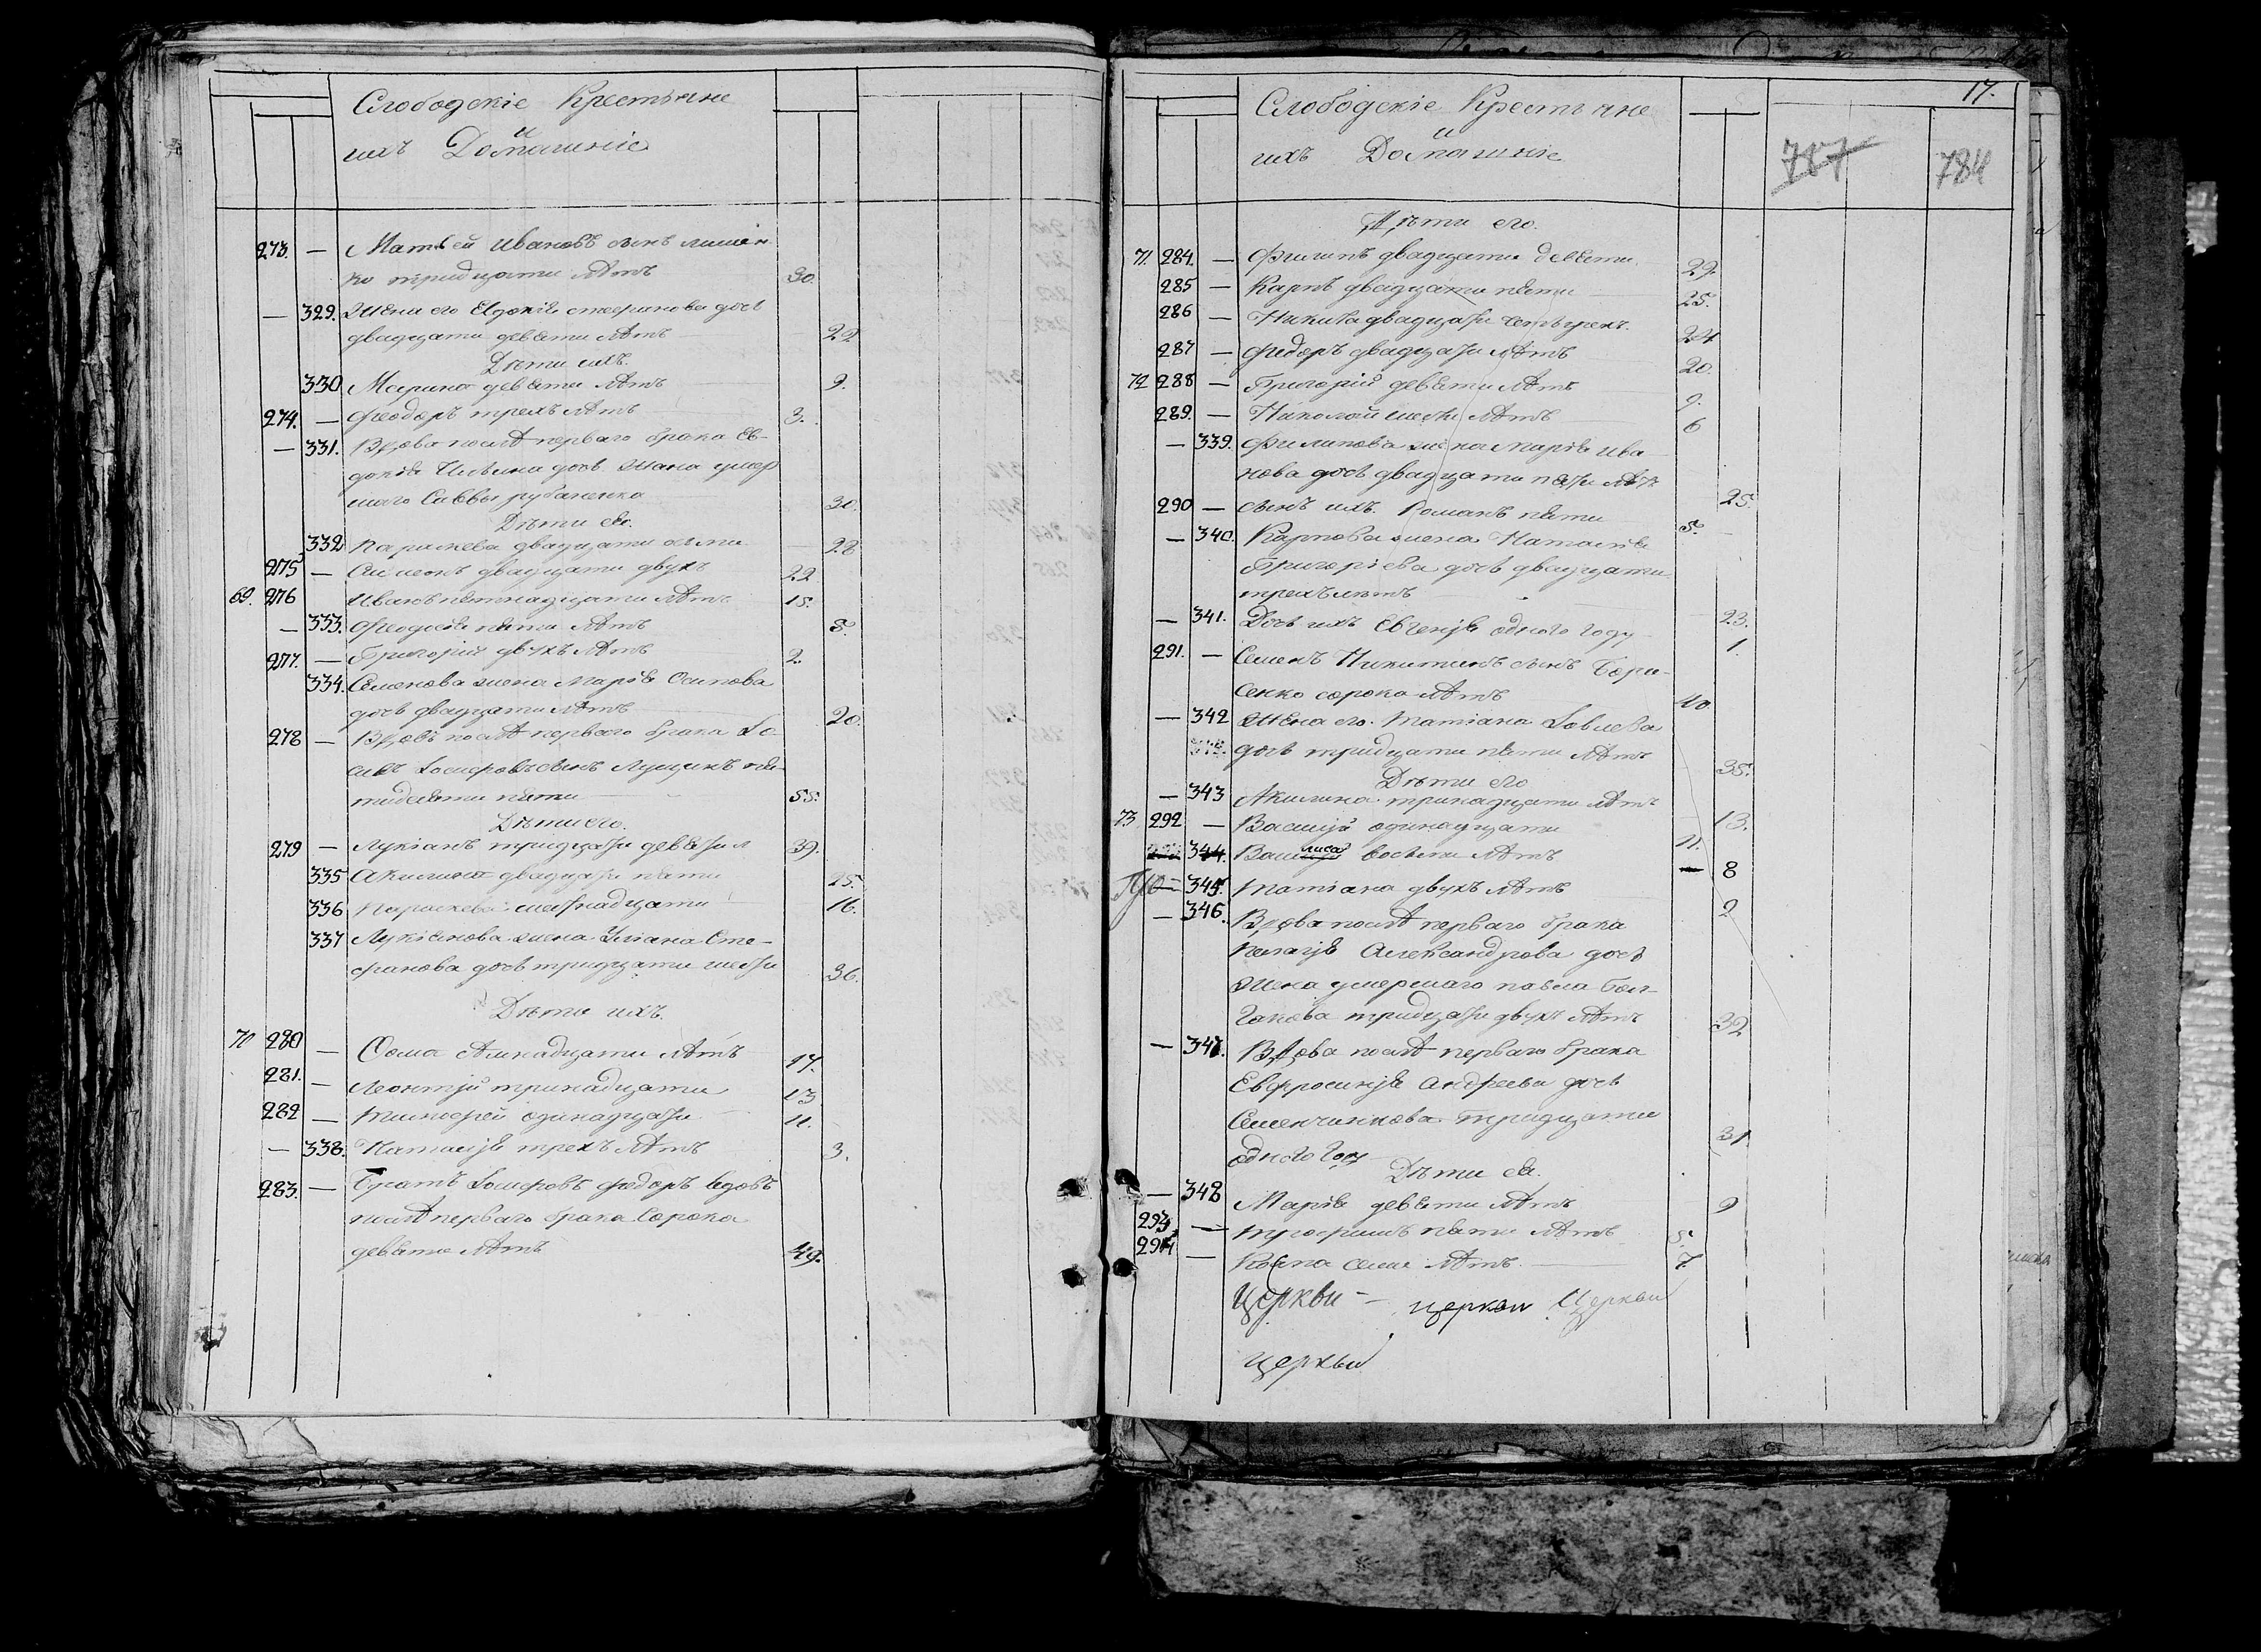 Слободскіе Крестьяне
и
ихъ Домашніе
273. — Матвей Ивановъ сынъ
ко тридцати лѣтъ 30.
— 329. Жена его Евдокія Стефанова дочь
двадцати девяти лѣтъ 29
Дѣти ихъ.
330. Марина девяти лѣтъ 9.
274. — Феодоръ трехъ лѣтъ 3.
— 331. Вдова послѣ перваго брака Ев-
докія дочь жена умер
шаго Саввы рубаненка 30.
Дѣти ея.
332 Параскева двадцати 28
275 — Симеонъ двадцати двухъ 22
69. 276 Иванъ пятнадцати лѣтъ 15.
— 333. Феодосія пяти лѣтъ 5.
277. — Григорій двухъ лѣтъ 2.
334. Семенова жена Марія Осипова
дочь двадцати лѣтъ 20.
278 — Вдовъ послѣ перваго брака Іо
сифъ Іосифовъ сынъ Лущикъ пя-
тидесяти пяти 55.
Дѣти его.
279 — Лукіанъ тридцати девяти л 39.
335 Акилина двадцати пяти 25.
336 Параскева шестнадцати 16.
337 Лукіянова жена Уліана Сте-
фанова дочь тридцати шести 36.
Дѣти ихъ.
70 280 — Фома семнадцати лѣтъ 17.
281. — Леонтій тринадцати 13
282 — Тимофей одинадцати 11.
— 338. Наталія трехъ лѣтъ 3.
283. — Братъ Іосифовъ Федоръ вдовъ
послѣ перваго брака сорока
девяти лѣтъ 49.
17.
Слободскіе Крестьяне
и
ихъ Домашніе
787 784
Дѣти его.
71. 284. — Филипъ двадцати девяти 29.
285 — Карпъ двадцати пяти 25.
286 — Никита двадцати четырехъ. 24
287 — Федоръ двадцати лѣтъ 20.
72 288 — Григорій девяти лѣтъ 9.
289. — Николай шести лѣтъ 6
— 339. Филипова жена Марія Ива
нова дочь двадцати пяти лѣтъ 25.
290 — сынъ ихъ Романъ пяти 5.
— 340. Карпова жена Наталія
Григоріева дочь двадцати
трехъ лѣтъ 23.
— 341. Дочь ихъ Евгенія одного году 1.
291. — Семенъ Никитинъ сынъ Бори-
сенко сорока лѣтъ 40
— 342 Жена его Татіана Іовлева
дочь тридцати пяти лѣтъ 35.
Дѣти его
— 343 Акилина тринадцати лѣтъ 13.
73 292 — Василій одинадцати 11.
344. Василиса восьми лѣтъ 8
— 345. Татіана двухъ лѣтъ 2
— 346. Вдова послѣ перваго брака
Пелагія Александрова дочь
Жена умершаго Павла Бол-
гакова тридцати двухъ лѣтъ 32
— 347. Вдова послѣ перваго брака
Евфросинія Андреева дочь
Семенчинкова тридцати
одного году 31
Дѣти ея.
— 348 Марія девяти лѣтъ 9
293 — Трофимъ пяти лѣтъ 5.
294 — Козма семи лѣтъ 7.
Церкви — церкви Церкви
церкви